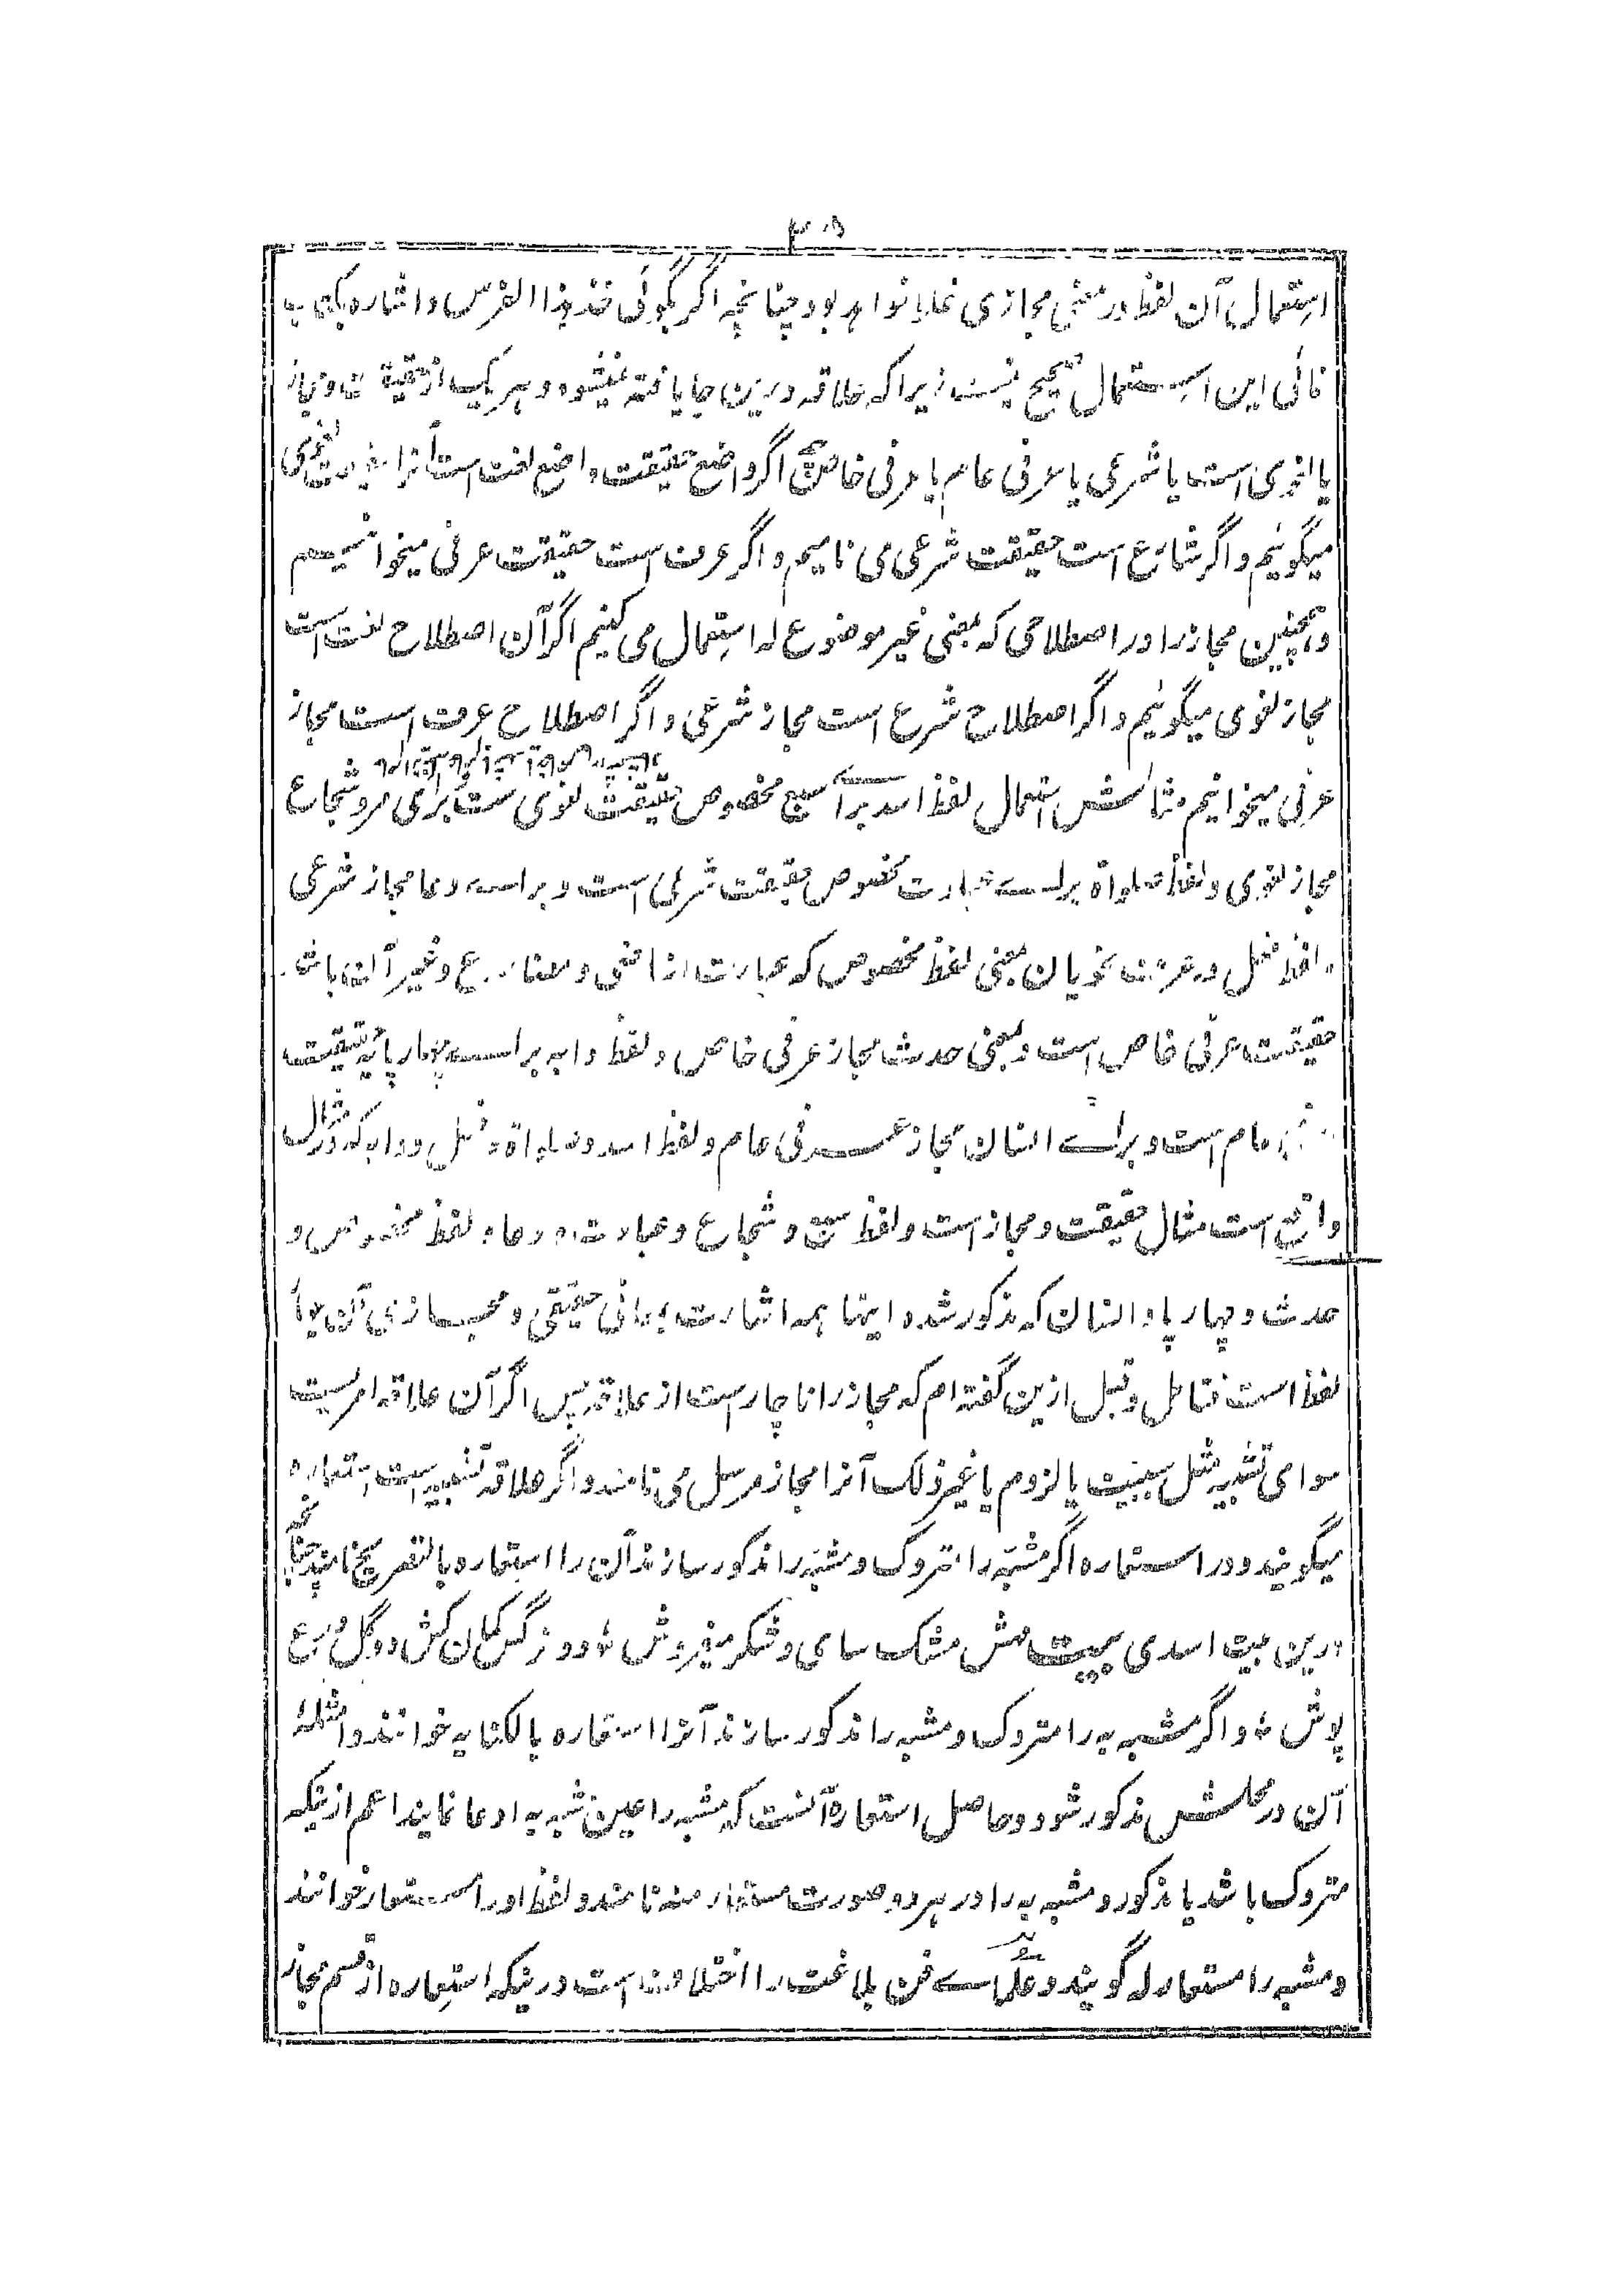 استعمال آن لفظ در معنی مجازی غلط خواهد بود چنانچه اگر گوئی خذ هذا الفرس و اشاره بکتاب
نمائی این استعمال صحیح نیست زیرا که علاقه درین جا یافته نمیشود و هر یک از حقیقت و مجاز
یا لغوی است یا شرعی یا عرفی عام یا عرفی خاص اگر واضع حقیقت واضع لغت است آنرا حقیقت لغوی
میگوئیم و اگر شارع است حقیقت شرعی می نامیم و اگر عرف است حقیقت عرفی میخوانیم
و همچنین مجاز را در اصطلاحی که بمعنی غیر موضوع له استعمال می کنیم اگر آن اصطلاح لغت است
مجاز لغوی میگوئیم و اگر اصطلاح شرع است مجاز شرعی و اگر اصطلاح عرف است مجاز
عرفی میخوانیم مثالش استعمال لفظ اسد براے سبع مخصوص حقیقت لغوی ست و برای مرد شجاع
مجاز لغوی و لفظ صلوٰة براے عبادت مخصوص حقیقت شرعی است و براے دعا مجاز شرعی
و لفظ فعل در عرف نحویان بمعنی لفظ مخصوص که عبارت از ماضی و مضارع و غیر آن باشد
حقیقت عرفی خاص است و بمعنی حدث مجاز عرفی خاص و لفظ دابه براے چهار پایه حقیقت
عام است و براے انسان مجاز عرفی عام و لفظ اسد و صلوٰة و فعل و دابه که در مثال
واقع است مثال حقیقت و مجاز است و لفظ سبع و شجاع و عبادت و دعا و لفظ مخصوص و
حدث و چهار پا و انسان که مذکور شد و اینها همه اشارت بمعانی حقیقی و مجازی آن
لفظ است فتامل و قبل ازین گفته ام که مجاز را ناچارست از علاقه پس اگر آن علاقه امریست
سوای تشبیه مثل سببیت یا لزوم یا غیر ذلک آنرا مجاز مرسل می نامند و اگر علاقه تشبیه است استعاره
میگویند و در استعاره اگر مشبه را متروک و مشبه به را مذکور سازند آن را استعاره بالتصریح نامند چنانچه
درین بیت اسدی بیت مش مشک سای و شکر میفروش ؞ دو نرگس کمان کش دو گل درع
پوش ؞ و اگر مشبه به را متروک و مشبه را مذکور سازند آنرا استعاره بالکنایه خوانند و امثلهٔ
آن در محلش مذکور شود و حاصل استعاره آنست که مشبه را عین مشبه به ادعا نمایند اعم ازینکه
متروک باشد یا مذکور و مشبه به را در هر دو صورت مستعار منه نامند و لفظ او را مستعار خوانند
و مشبه را مستعار له گویند و علماے فن بلاغت را اختلاف است درینکه استعاره از قسم مجاز